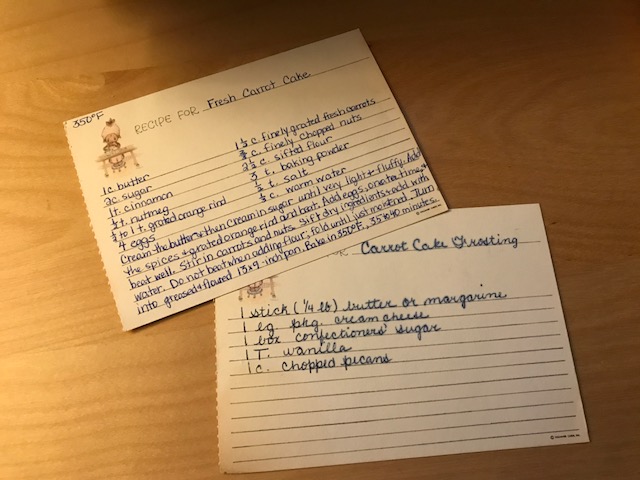 350°F
RECIPE FOR Fresh Carrot Cake
1c butter
2c sugar
1t. cinnamon
½t. nutmeg
½ to 1 t. grated orange rind
4 eggs
1½ c. finely grated fresh carrots
⅔ c. finely chopped nuts
2½ c. sifted flour
3 t. baking powder
½ t. salt
⅓ c. warm water
Cream the butter & then cream in sugar until very light & fluffy. Add
the spices & grated orange rind and beat. Add eggs, one at a time, &
beat well. Stir in carrots and nuts. Sift dry ingredients & add with
water. Do not beat when adding flour, fold until just moistened. Turn
into greased & floured 13x9 inch pan. Bake in 350°F., 35 to 40 minutes.
Carrot Cake Frosting
1 stick (1/4 lb) butter or margarine
1 lg pkg. cream cheese
1 box confectioners' sugar
1 T. vanilla
1 c. chopped pecans